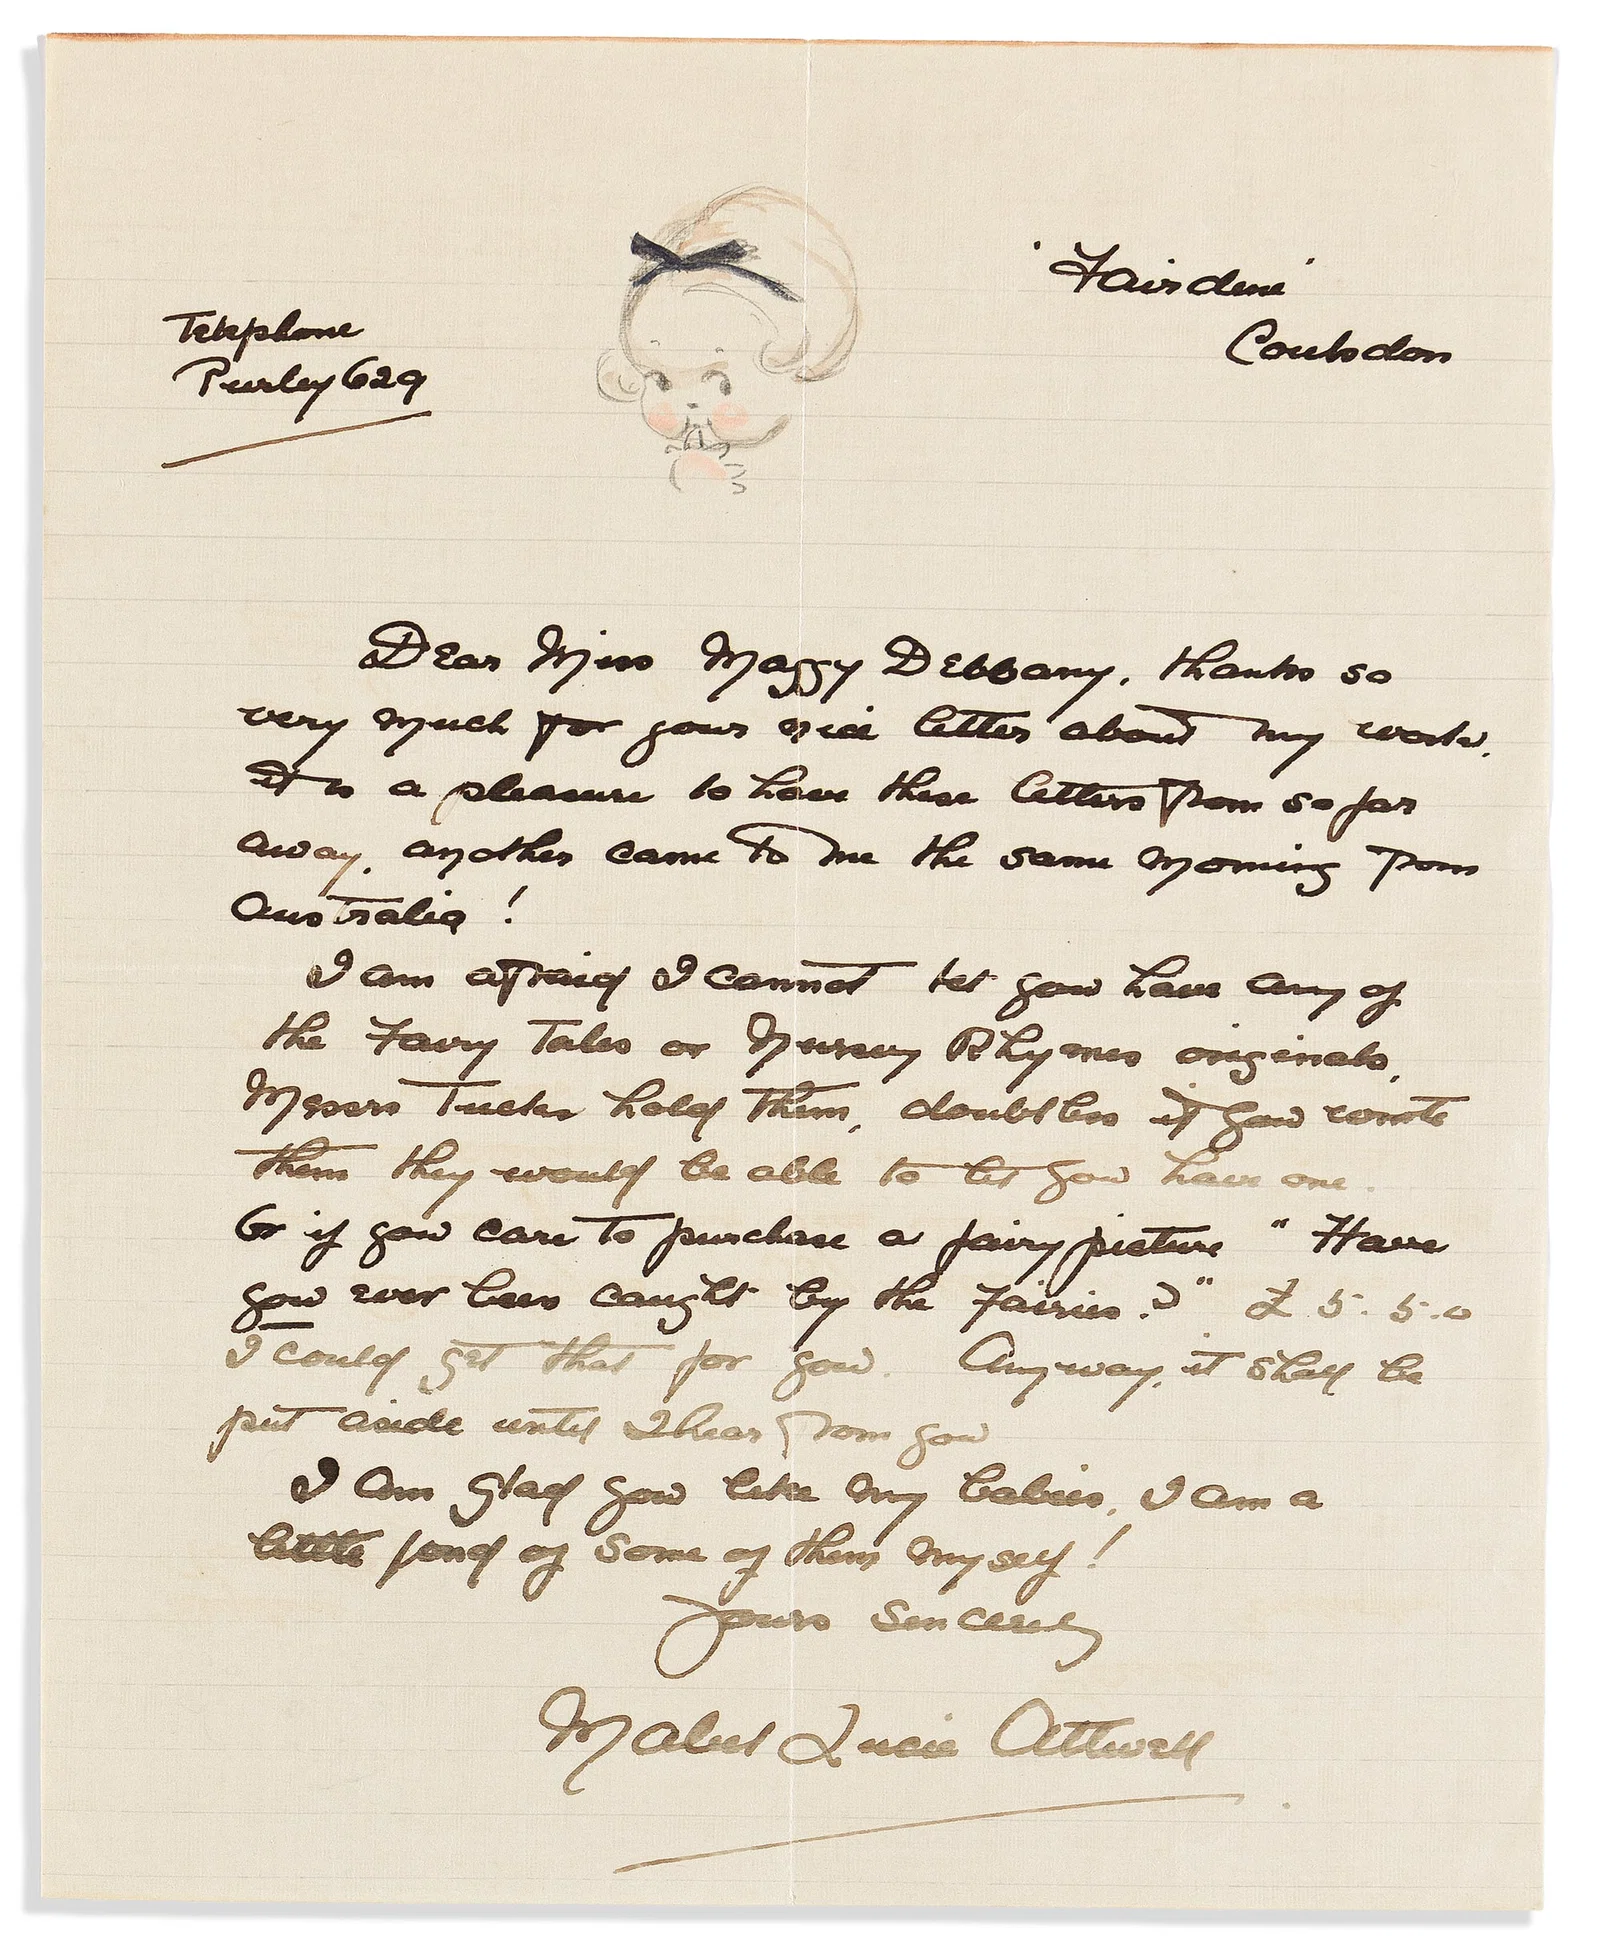 'Fairdene'
Coulsdon
Telephone
Purley 629
Dear Miss Maggy Debbany, thanks so
very much for your nice letter about my work.
it is a pleasure to have these letters from so far
away, another came to me the same morning from
Australia!
I am afraid I cannot let you have any of
the Fairy Tales or Nursery Rhymes originals,
Messrs Tucks hold them, doubtless if you wrote
them they would be able to let you have one.
Or if you care to purchase a fairy picture "Have
you ever been caught by the Fairies?" £5.5.0
I could get that for you. Anyway, it shall be
put aside until I hear from you
I am glad you like my babies, I am a
little fond of some of them myself!
Yours sincerely
Mabel Lucie Attwell